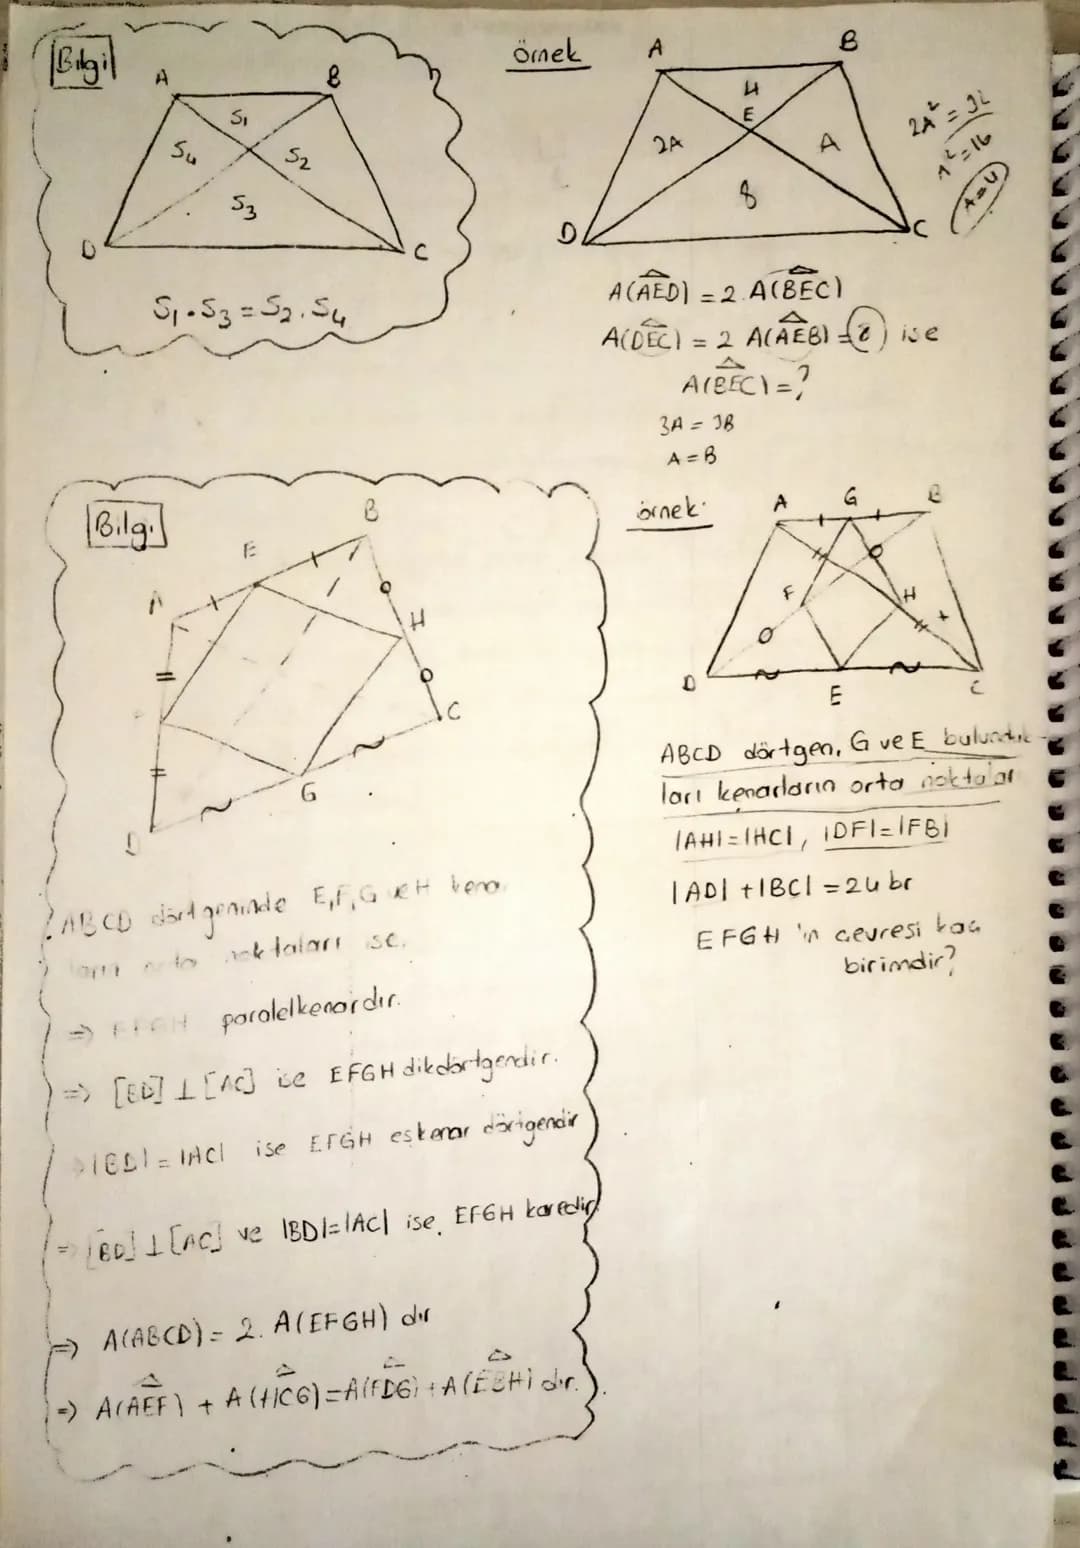 Bilgi
A B
S₁
S₄ S₂
S₃
D C
S₁.S₃ = S₂.S₄
örnek
A B
4
E
2A A
8
D C
2A² = 32
A² = 16
A = 4
A(AED) = 2.A(BEC)
A(DEC) = 2 A(AEB) = 8 ise
A(BEC) = ?
3A = 3B
A = B
Bilgi
B
E
A
H
C
G
D
ABCD dörtgeninde E,F,G ve H kena
ların orta noktaları ise.
=> EFGH paralelkenardır.
=> [BD] ⊥ [AC] ise EFGH dikdörtgendir.
|BD| = |AC| ise EFGH eşkenar dörtgendir
=> [BD] ⊥ [AC] ve |BD|=|AC| ise, EFGH karedir.
=> A(ABCD) = 2. A(EFGH) dır
=> A(AEF) + A(HCG) = A(FDG) + A(EBH) dır.
örnek:
A G B
F H
D E C
ABCD dörtgen, G ve E bulunduk-
ları kenarların orta noktaları
|AH| = |HC|, |DF| = |FB|
|AD| + |BC| = 24 br
EFGH 'ın çevresi kaç
birimdir?